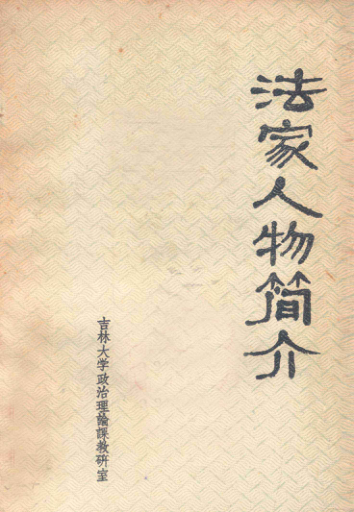 法家人物简介
吉林大学政治理論課教硏室